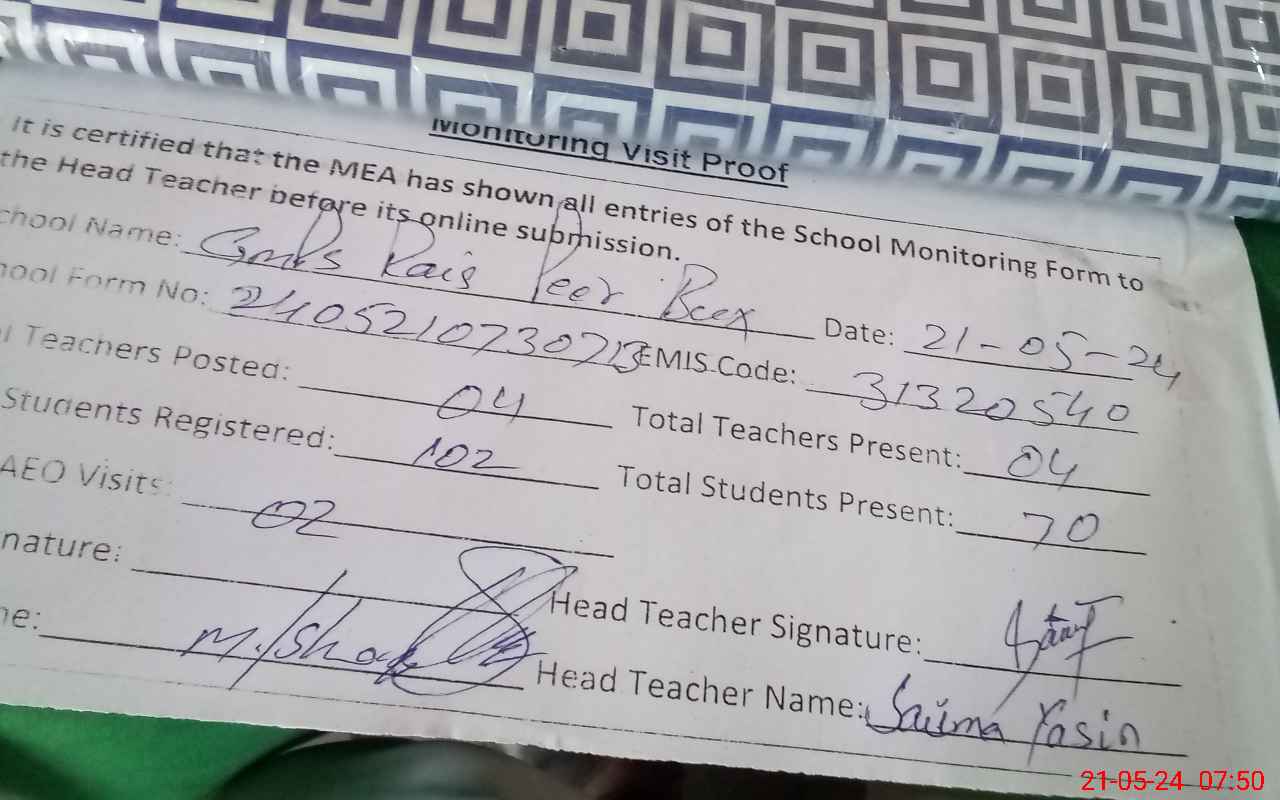 Monitoring Visit Proof
It is certified that the MEA has shown all entries of the School Monitoring Form to
the Head Teacher before its online submission.
chool Name: Gmps Rais Peer Bux Date: 21-05-24
hool Form No: EMIS Code: 31320540
l Teachers Posted: 04 Total Teachers Present: 04
Students Registered: 102 Total Students Present: 70
AEO Visits: 02
nature: Head Teacher Signature:
ne: M. Ishaq Head Teacher Name: Saima Yasin
21-05-24 07:50